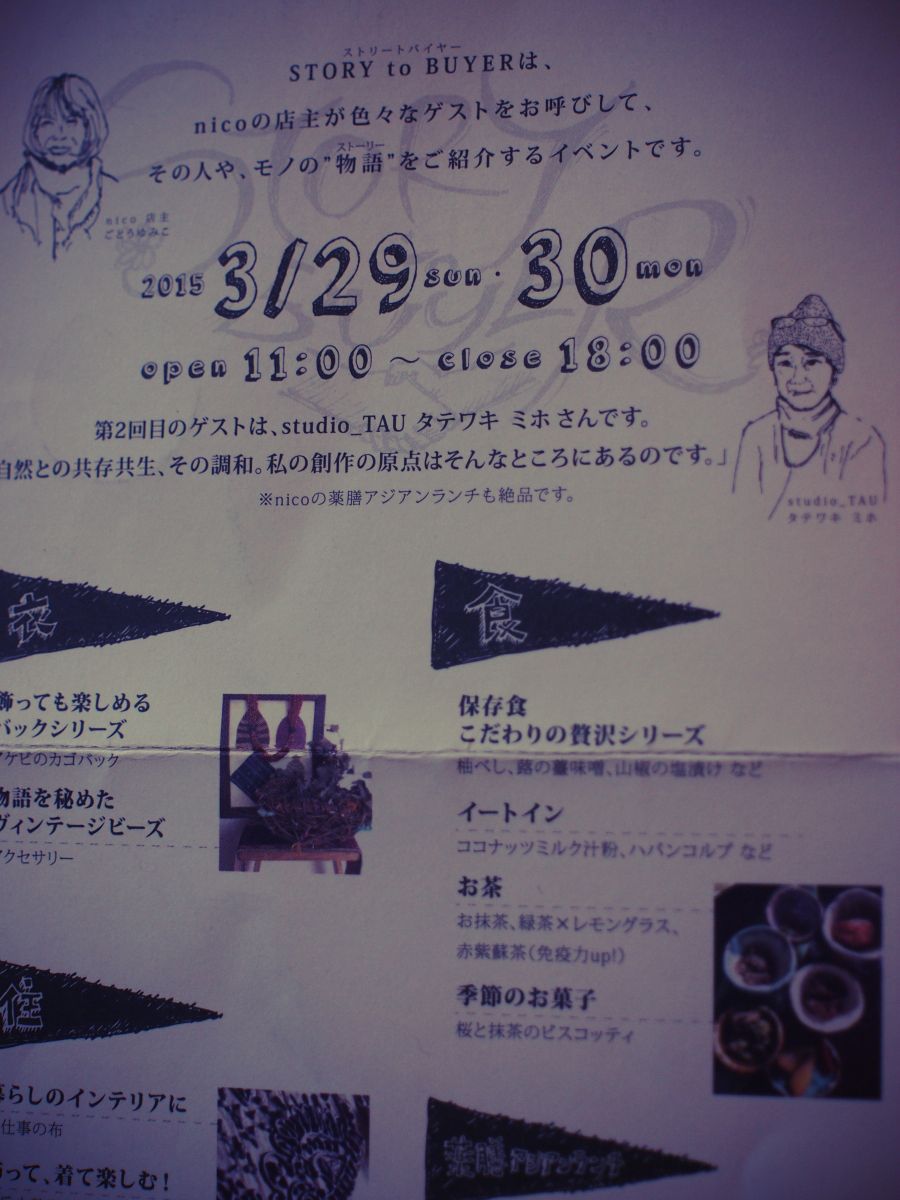 ストリートバイヤー
STORY to BUYERは、
nicoの店主が色々なゲストをお呼びして、
ストーリー
その人や、モノの"物語"をご紹介するイベントです。
nico 店主
ごとうゆみこ
STORY
to
BUYER
2015 3/29 sun・30 mon
open 11:00 〜 close 18:00
第2回目のゲストは、studio_TAU タテワキ ミホ さんです。
自然との共存共生、その調和。私の創作の原点はそんなところにあるのです。」
※nicoの薬膳アジアンランチも絶品です。
studio_TAU
タテワキ ミホ
衣
飾っても楽しめる
バックシリーズ
アケビのカゴバック
物語を秘めた
ヴィンテージビーズ
アクセサリー
食
保存食
こだわりの贅沢シリーズ
柚べし、蕗の薹味噌、山椒の塩漬け など
イートイン
ココナッツミルク汁粉、ハバンコルプ など
お茶
お抹茶、緑茶×レモングラス、
赤紫蘇茶(免疫力up!)
季節のお菓子
桜と抹茶のビスコッティ
住
暮らしのインテリアに
仕事の布
って、着て楽しむ!
薬膳アジアンランチ